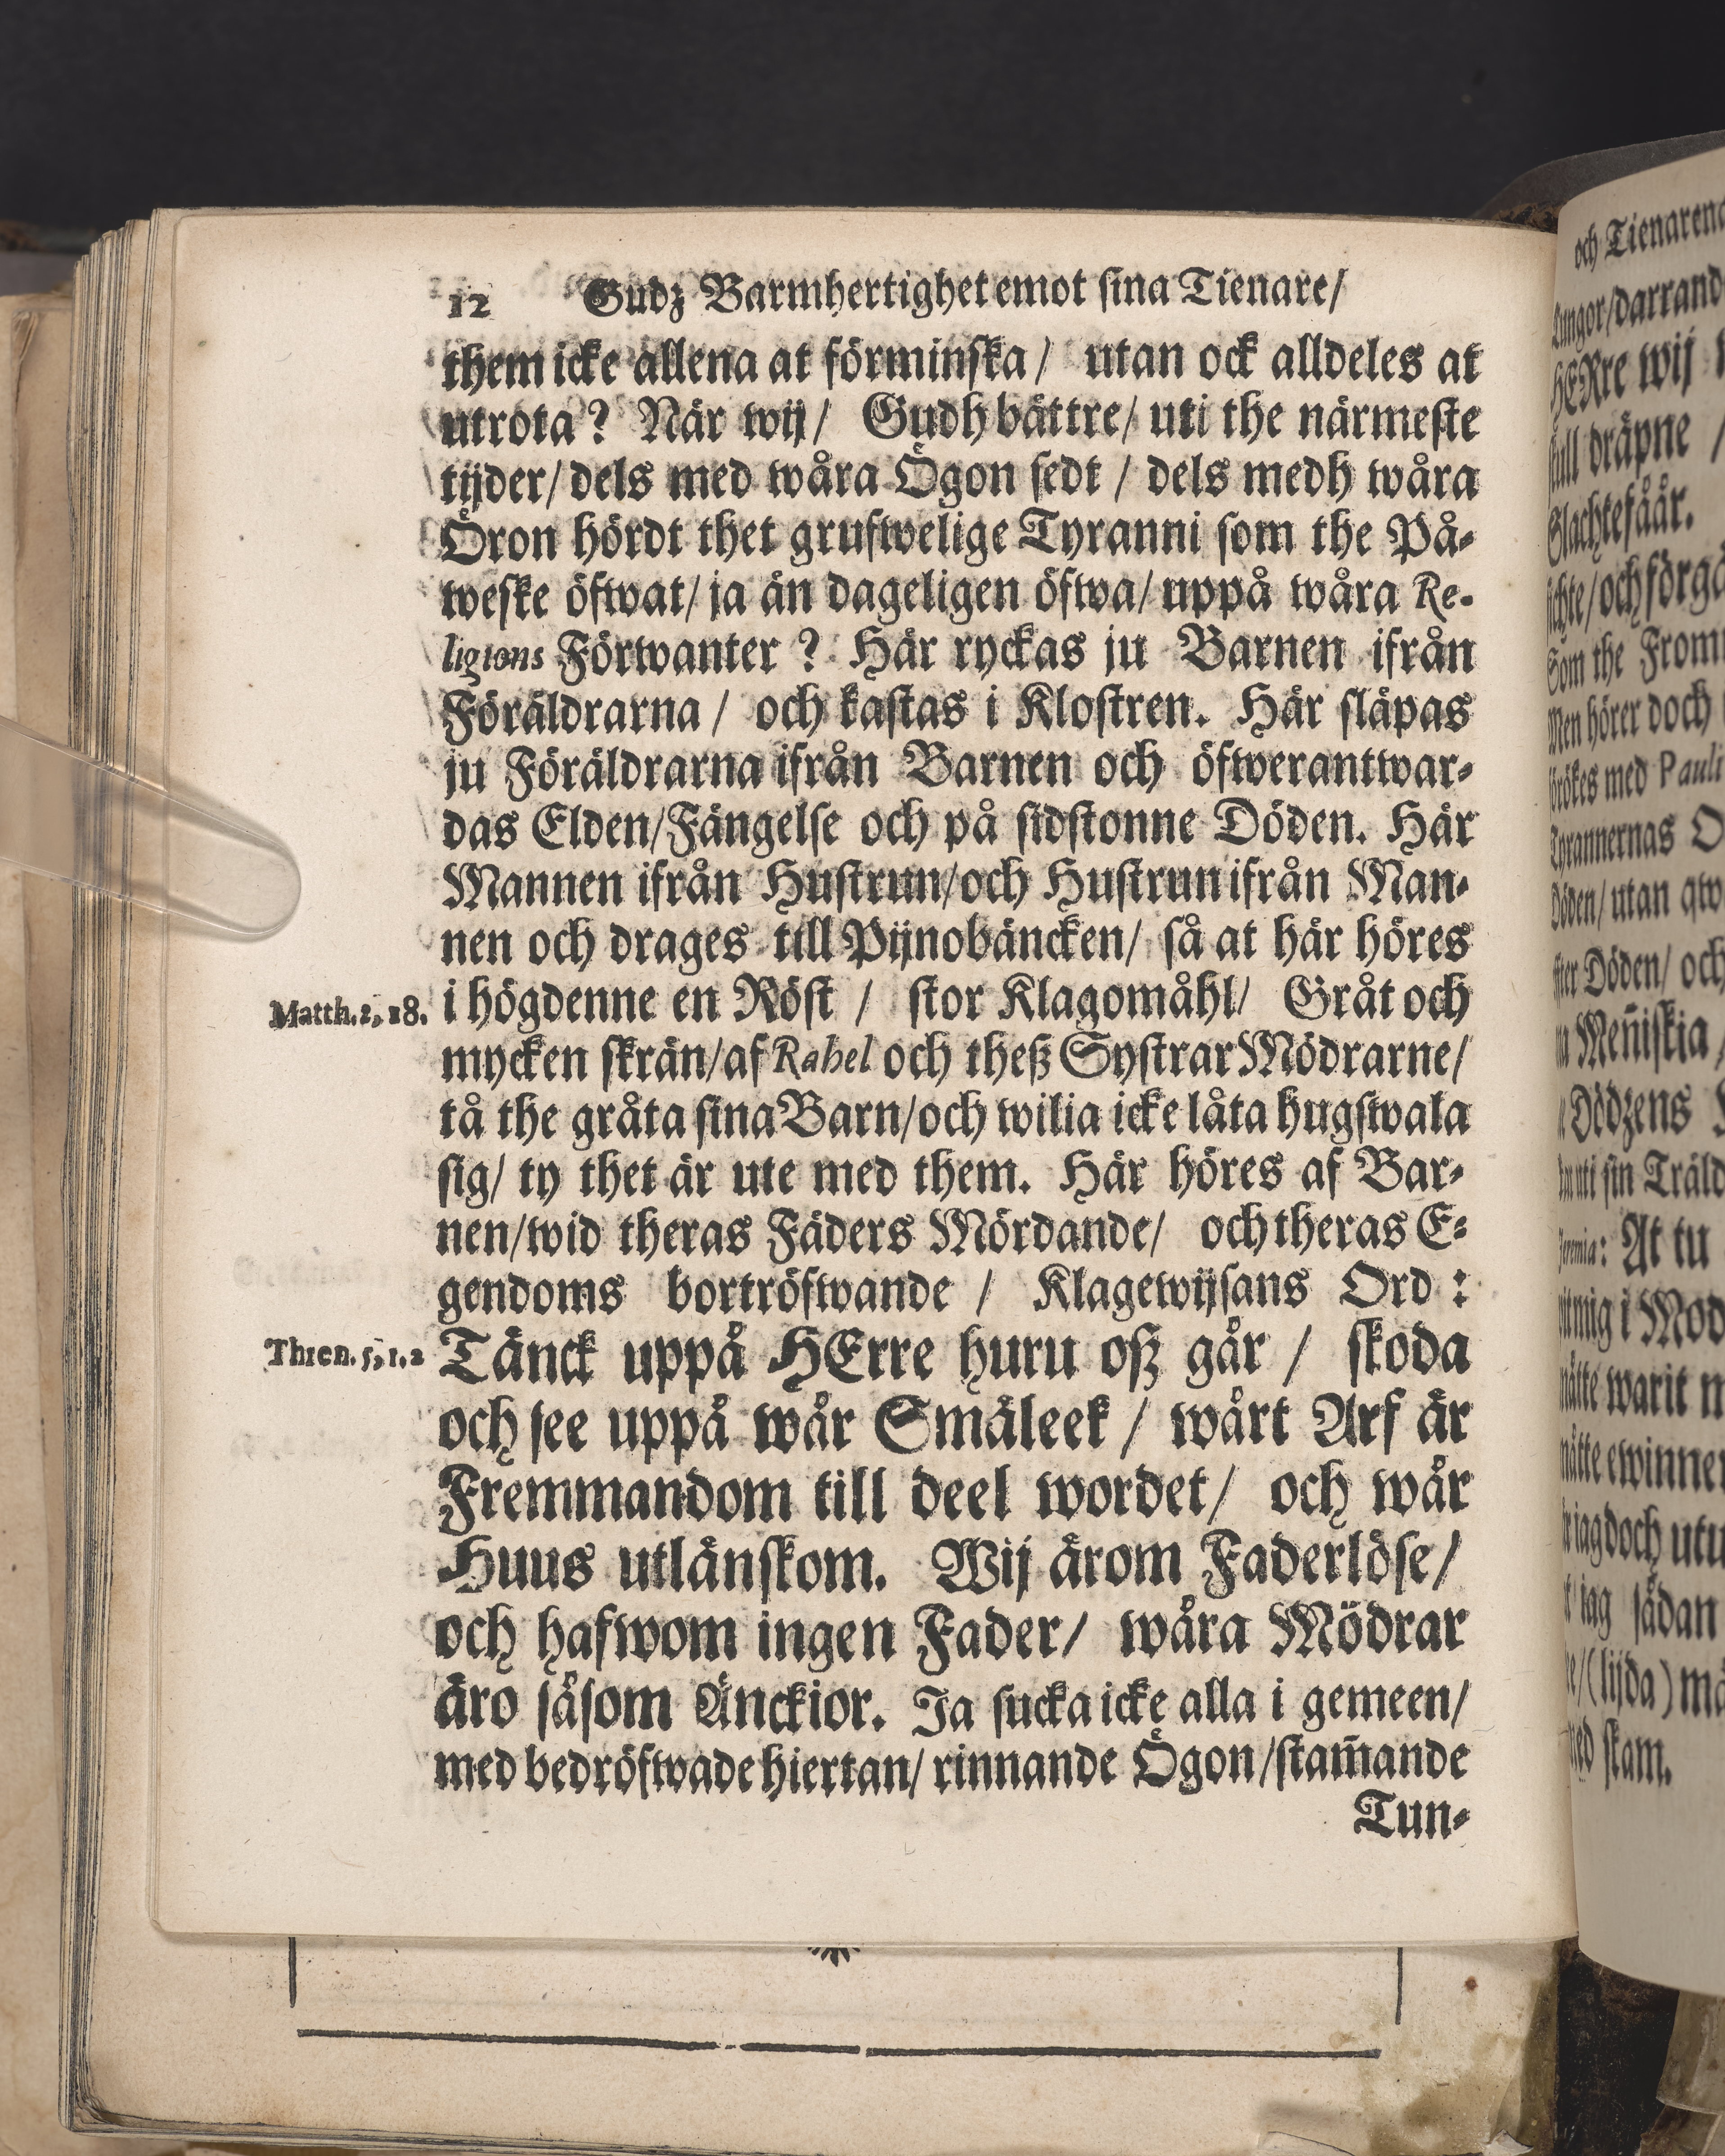 12 Gudz Barmhertighet emot sina Tienare/
them icke allena at förminska / utan ock alldeles at
utrota? När wij / Gudh bättre/ uti the närmeste
tijder/ dels med wåra Ögon sedt / dels medh wåra
Öron hördt thet grufwelige Tyranni som the På-
weske öfwat/ ja än dageligen öfwa/ uppå wåra Re-
ligions Förwanter? Här ryckas ju Barnen ifrån
Föräldrarna / och kastas i Klostren. Här släpas
ju Föräldrarna ifrån Barnen och öfwerantwar-
das Elden/Fängelse och på sidstonne Döden. Här
Mannen ifrån Hustrun/och Hustrun ifrån Man-
nen och drages till Pijnobäncken/ så at här höres
Matth. 2, 18. i högdenne en Röst / stor Klagomåhl/ Gråt och
mycken skrän/af Rahel och theß Systrar Mödrarne/
tå the gråta sina Barn/och wilia icke låta hugswala
sig/ ty thet är ute med them. Här höres af Bar-
nen/wid theras Fäders Mördande/ och theras E-
gendoms bortröfwande / Klagewijsans Ord:
Thren. 5, 1. 2 Tänck uppå HErre huru oß går / skoda
och see uppå wår Smäleek / wårt Arf är
Fremmandom till deel wordet/ och wår
Huus utlänskom. Wij ärom Faderlöse/
och hafwom ingen Fader/ wåra Mödrar
äro såsom Änckior. Ja sucka icke alla i gemeen/
med bedröfwade hiertan/ rinnande Ögon/stam̃ande
Tun-
och Tienarena
Tungor/darrand
HERre wij
full dräpne /
Slachtefåår.
Som the From
Men hörer doch
med Pauli
Tyrannernas O
Döden/ utan qw
Döden/ och
Men̄iskia
Dödzens
sin Träld
At tu
mig i Mod
warit m
jag doch utu
jag sådan
(lijda) må
skam.